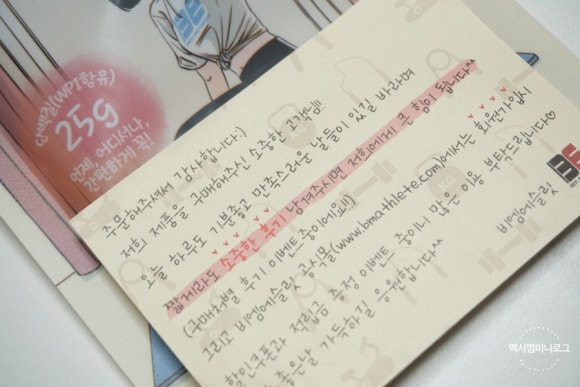 단백질(WPI함유)
25g
언제, 어디서나,
간편하게 꿀꺽!
주문해주셔서 감사합니다:)
저희 제품을 구매해주신 소중한 고객님!!
오늘 하루도 기분좋고 만족스러운 날들이 있길 바라며
짧게라도 소중한 후기 남겨주시면 저희에게 큰 힘이 됩니다^^
(구매처별 후기 이벤트중이에요!!)
그리고 비엠에슬릿 공식몰(www.bmathlete.com)에서는 회원가입시
할인쿠폰과 적립금 증정 이벤트 중이니 많은 이용 부탁드립니다♡
좋은날 가득하길 응원합니다^^
비엠에슬릿
맥시멈미니로그